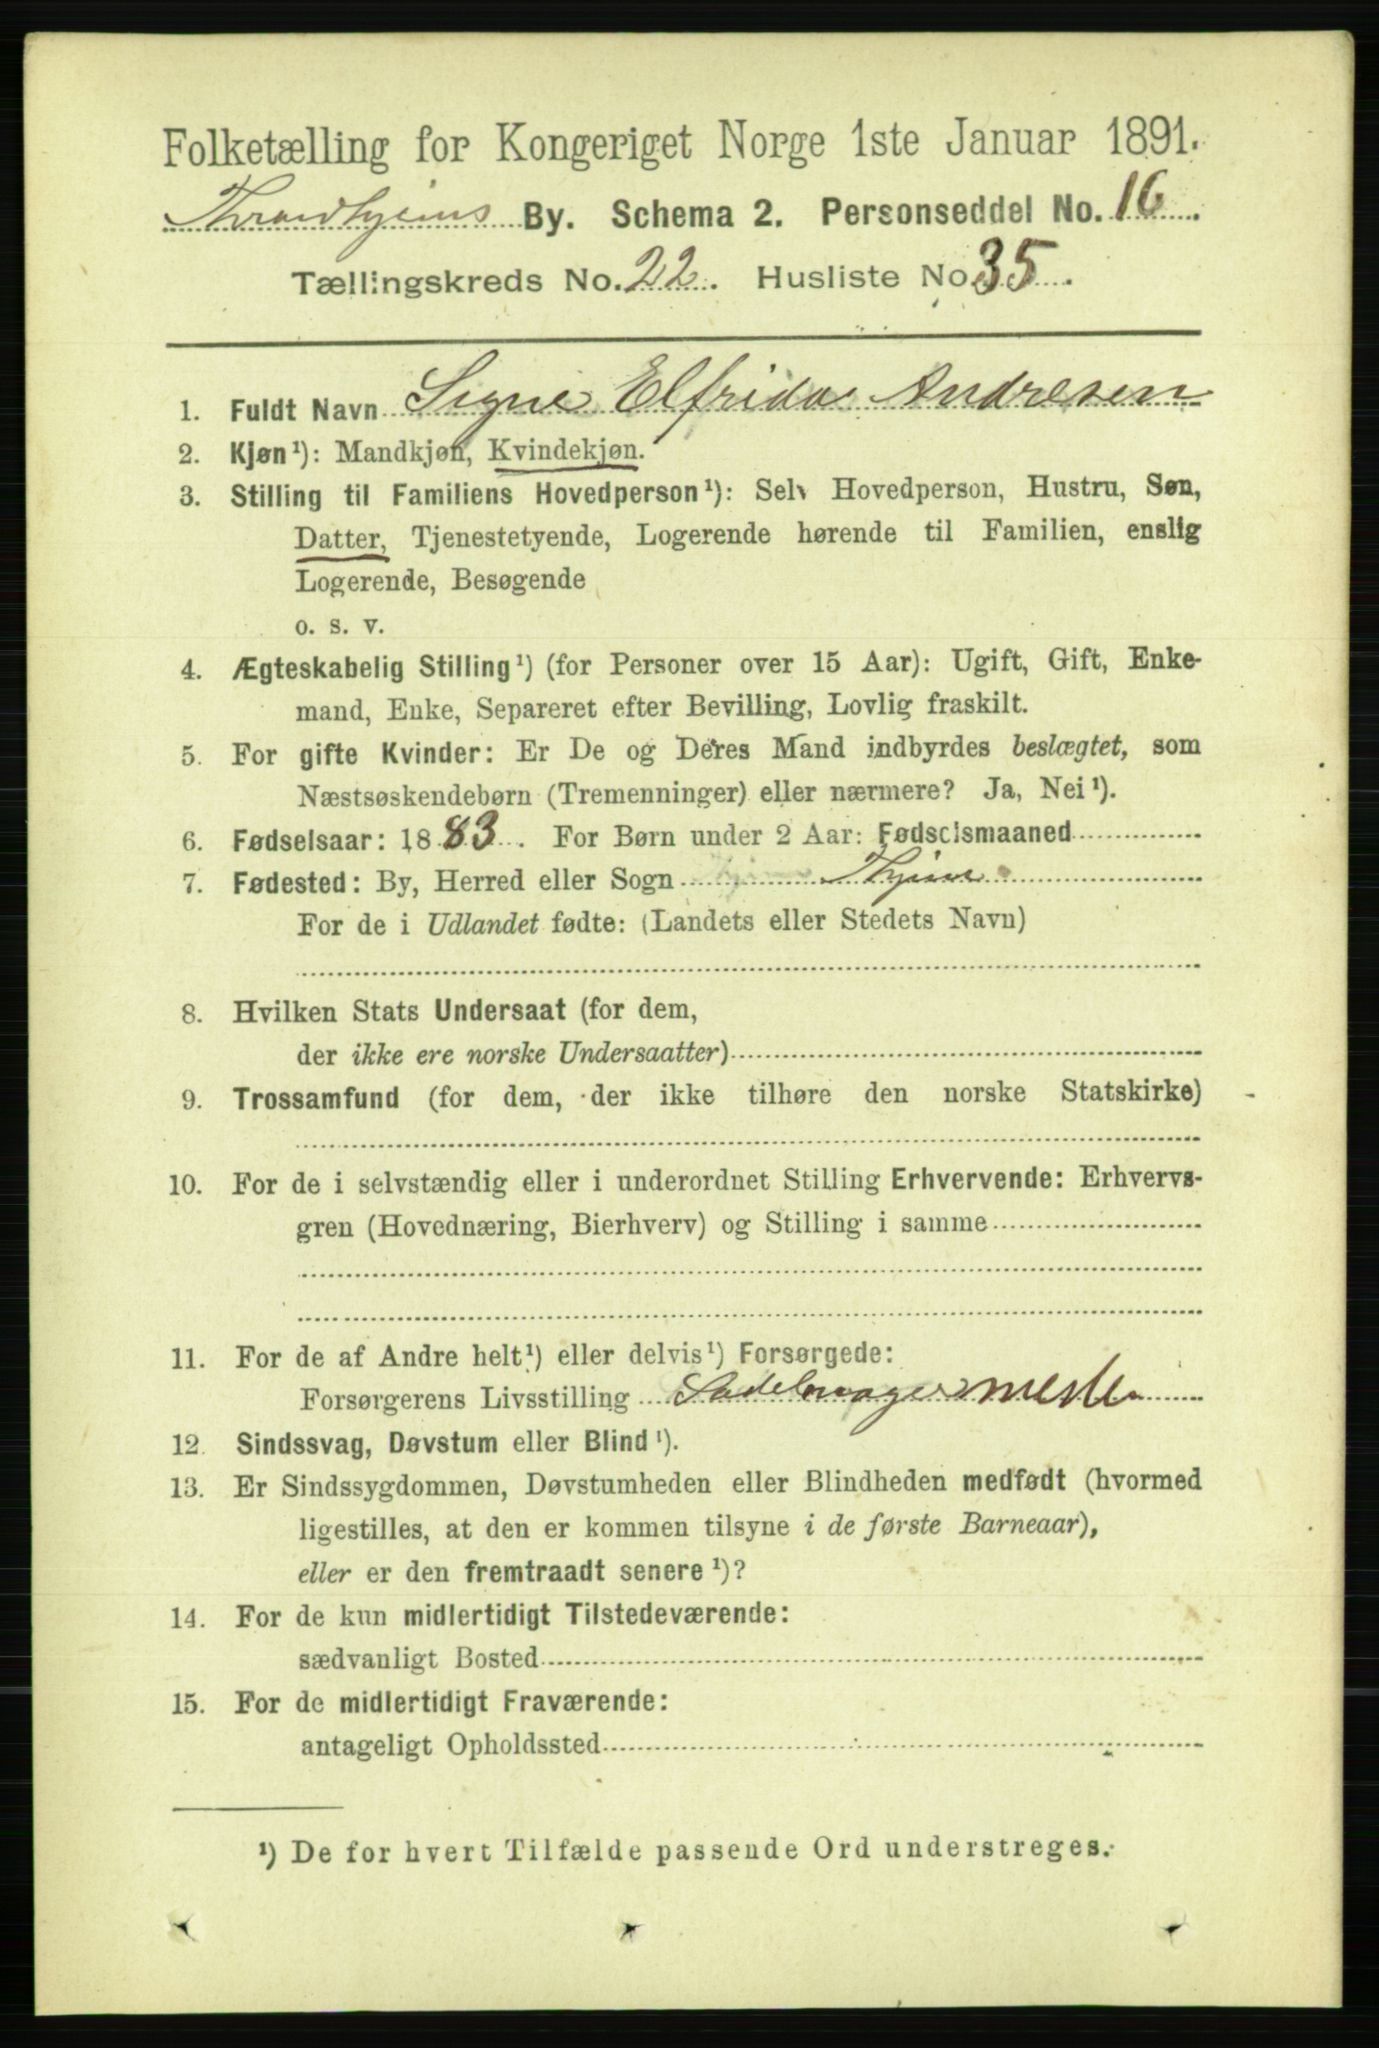 Folketælling for Kongeriget Norge 1ste Januar 1891.
Trondhjems By. Schema 2. Personseddel No. 16.
Tællingskreds No. 22. Husliste No 35.
1. Fuldt Navn Signe Elfrida Andresen
2. Kjøn¹): Mandkjøn, Kvindekjøn.
3. Stilling til Familiens Hovedperson¹): Selv Hovedperson, Hustru, Søn,
Datter, Tjenestetyende, Logerende hørende til Familien, enslig
Logerende, Besøgende
o. s. v.
4. Ægteskabelig Stilling¹) (for Personer over 15 Aar): Ugift, Gift, Enke-
mand, Enke, Separeret efter Bevilling, Lovlig fraskilt.
5. For gifte Kvinder: Er De og Deres Mand indbyrdes beslægtet, som
Næstsøskendebørn (Tremenninger) eller nærmere? Ja, Nei¹).
6. Fødselsaar: 1883. For Børn under 2 Aar: Fødselsmaaned
7. Fødested: By, Herred eller Sogn Thjem
For de i Udlandet fødte: (Landets eller Stedets Navn)
8. Hvilken Stats Undersaat (for dem,
der ikke ere norske Undersaatter)
9. Trossamfund (for dem, der ikke tilhøre den norske Statskirke)
10. For de i selvstændig eller i underordnet Stilling Erhvervende: Erhvervs-
gren (Hovednæring, Bierhverv) og Stilling i samme
11. For de af Andre helt¹) eller delvis¹) Forsørgede:
Forsørgerens Livsstilling Sadelmagermester
12. Sindssvag, Døvstum eller Blind¹).
13. Er Sindssygdommen, Døvstumheden eller Blindheden medfødt (hvormed
ligestilles, at den er kommen tilsyne i de første Barneaar),
eller er den fremtraadt senere¹)?
14. For de kun midlertidigt Tilstedeværende:
sædvanligt Bosted
15. For de midlertidigt Fraværende:
antageligt Opholdssted
¹) De for hvert Tilfælde passende Ord understreges.